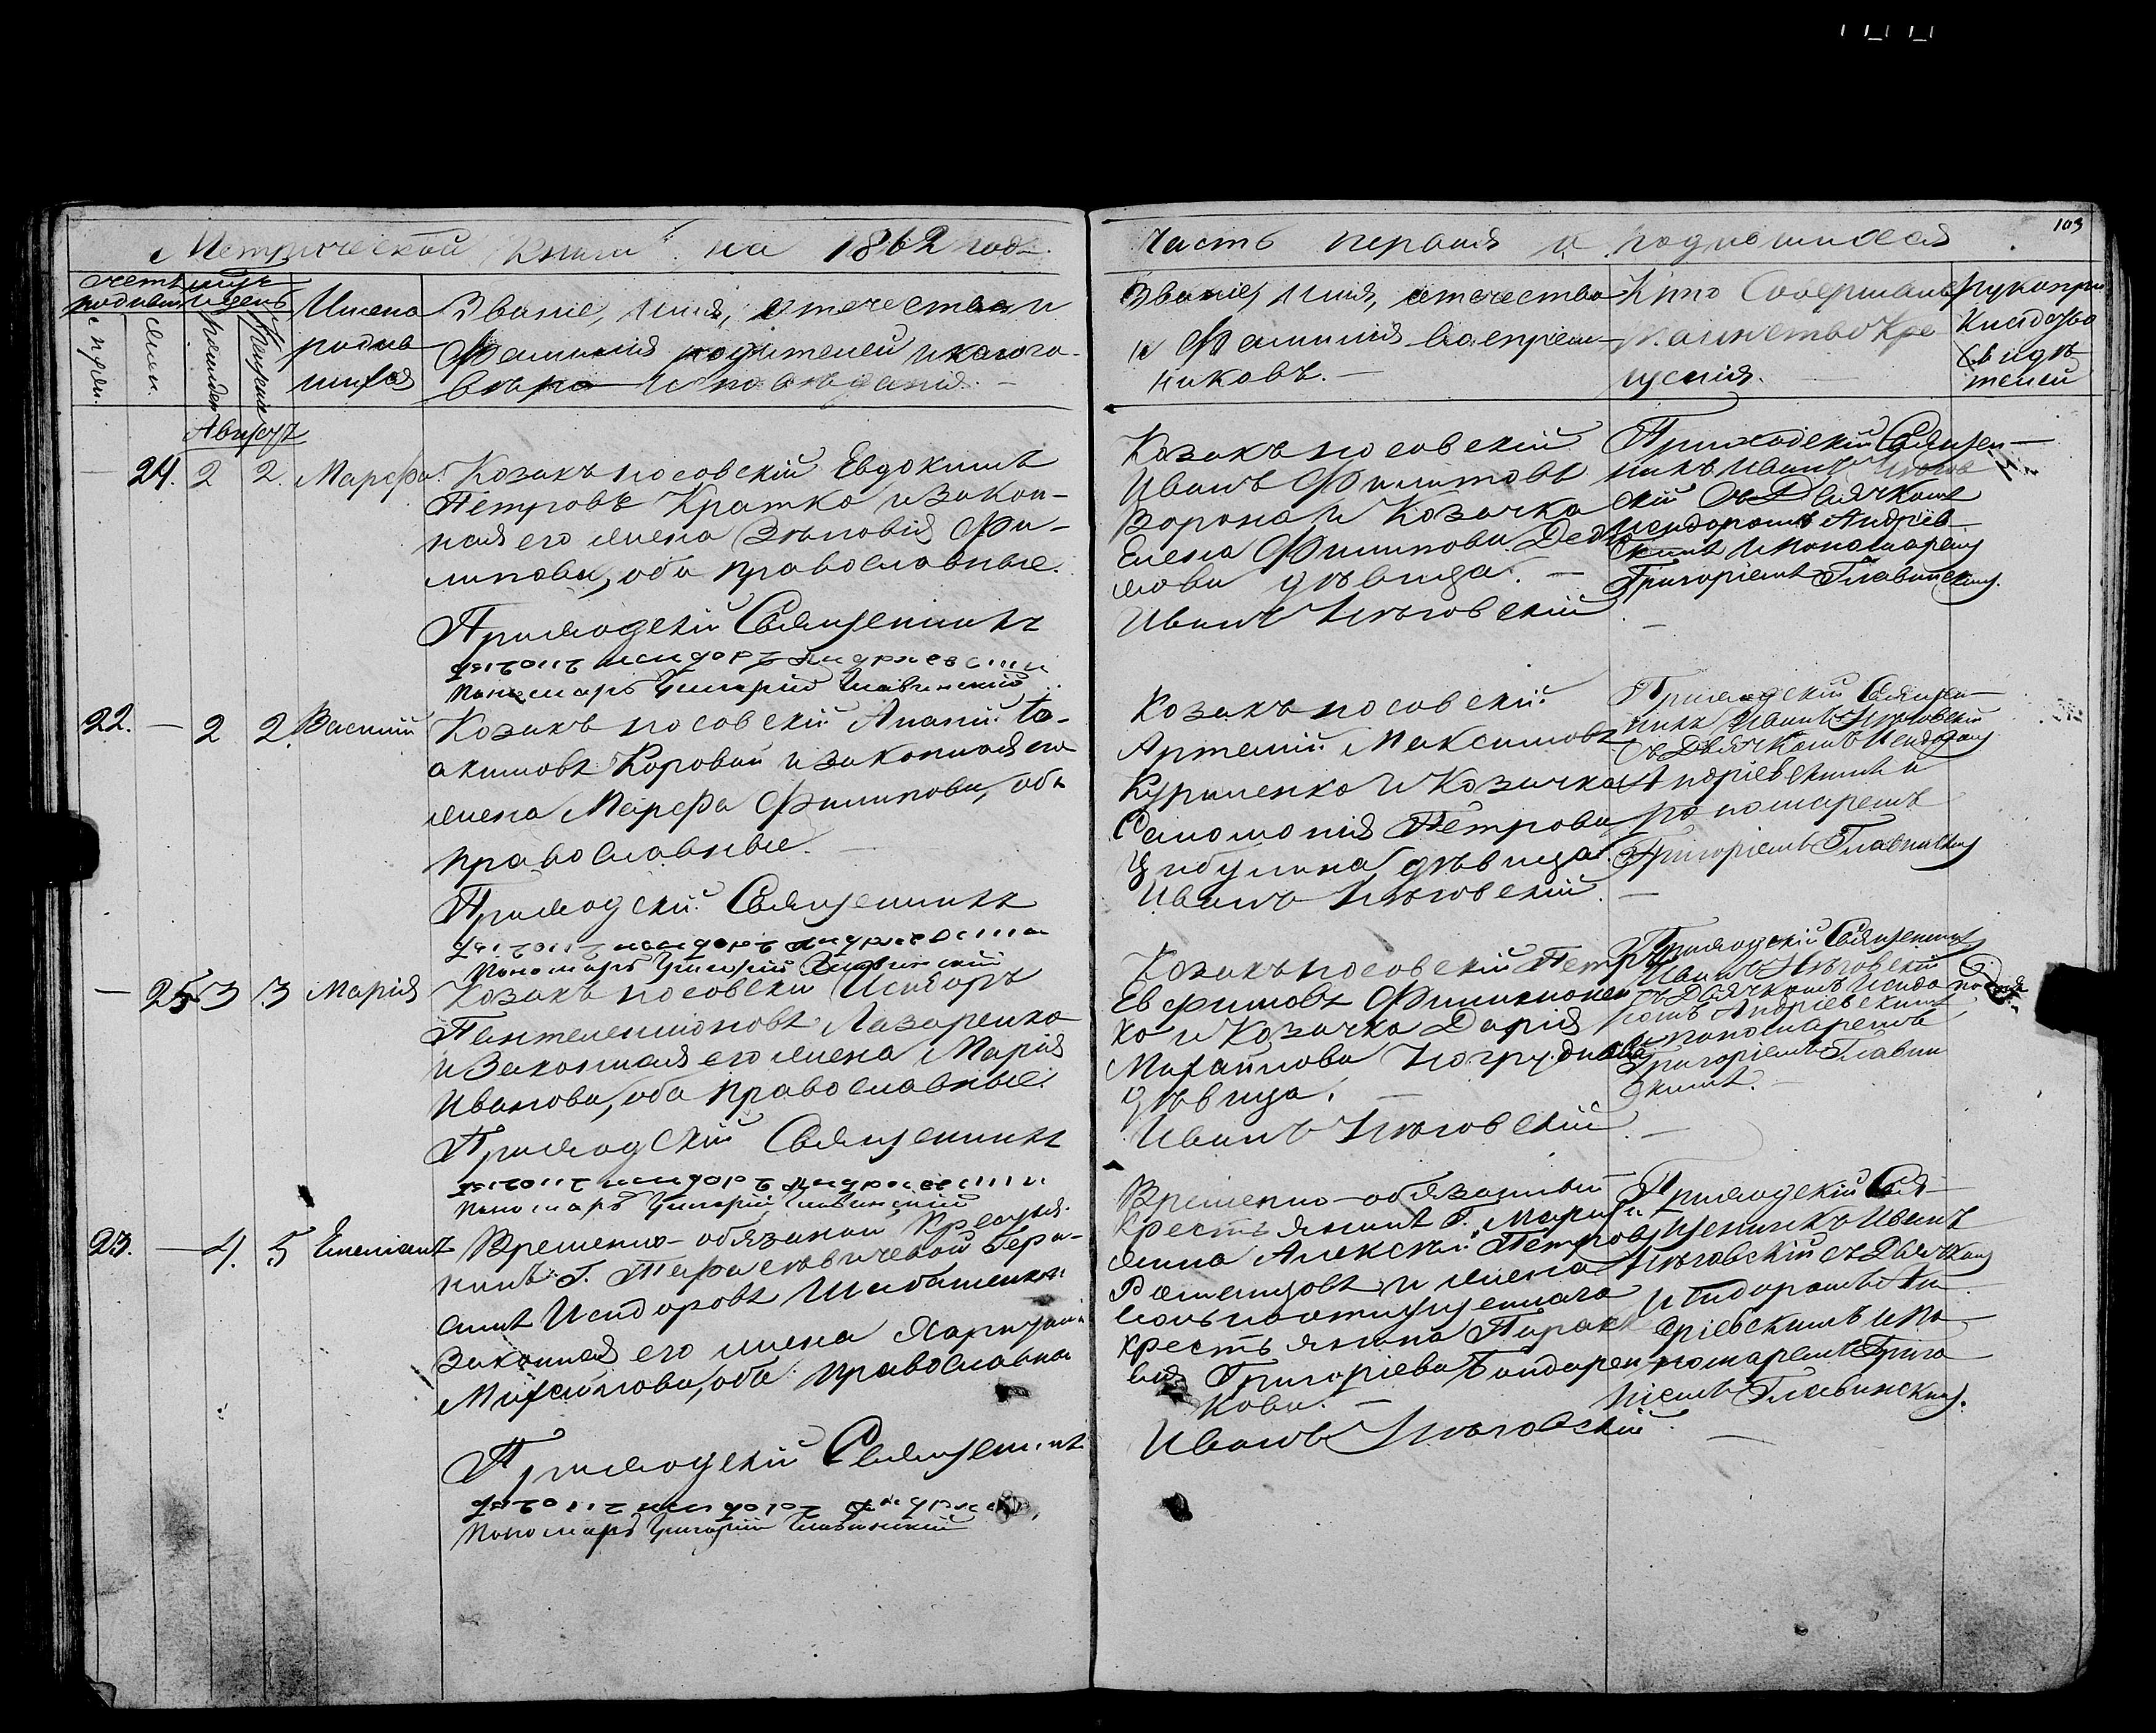 Метрической книги на 1862 годъ.
Часть первая о родившихся
103
счетъ родивш
муж.
жен.
мѣсяцъ и день
рожденія
крещенія
Имена
родив
шихся
Званіе, имя, отечество и
фамилія родителей и какого
вѣро исповѣданія. —
Званіе, имя, отечество
и фамилія воспріем
никовъ. —
Кто совершалъ
таинство кре
щенія.
рукопри
кладство
свидѣ
телей
Августъ
24. 2 2. Марѳа.
Козакъ носовскій Евдокимъ
Петровъ Кратко и закон-
ная его жена Зѣновія Фи-
липова, оба православные.
Приходскій Священникъ
дячокъ исидоръ андріевскій
Пономарь Григорій Главинскій
Козакъ носовскій
Иванъ Филиповъ
Ворона и Козачка
Елена Филипова
дѣвица. —
Иванъ
Приходскій Священ-
никъ Иванъ
скій съ Дьячкомъ
Исидоромъ Андріев
скимъ и пономаремъ
Григоріемъ Главинским.
22. — 2 2. Василій
Козакъ носовскій Ананій Іо-
акимовъ Коровай и законная его
жена Марѳа Филипова, оба
православные. —
Приходскій Священникъ
дячокъ исидоръ андріевскій
Пономарь Григорій Главинскій
Козакъ носовскій
Артемій Максимовъ
Куриленко и Козачка
Соломонія Петрова
Цибулина дѣвица.
Иванъ
Приходскій Священ-
никъ Иванъ
съ Дьячкомъ Исидором
Андріевскимъ и
пономаремъ
Григоріемъ Главинским
— 25 3 3 Марія
Козакъ носовскій Исидоръ
Пантелеимоновъ Лазаренко
и Законная его жена Марія
Иванова, оба православные.
Приходскій Священникъ
дячокъ исидоръ андріевскій
Пономарь Григорій Главинскій
Козакъ носовскій Петръ
Евфимовъ Филимонен
ко и Козачка Дарія
Михайлова
дѣвица. —
Иванъ
Приходскій Священникъ
Иванъ
съ Дьячкомъ Исидо
ромъ Андріевскимъ
и пономаремъ
Григоріемъ Главин
скимъ. —
23. — 4. 5 Емеліанъ
Временно-обязаный Крестья
нинъ Г. Гера-
симъ Исидоровъ
законная его жена Харитина
Михайлова, оба православные
Приходскій Священникъ
дячокъ исидоръ андріевскій
Пономарь Григорій Главинскій
Временно-обязанный
Крестьянинъ Г. Марку
Алексѣй Петровъ
и жена
вольноотпущеннаго
крестьянина Параске
вія Григоріева Бондарен
кова. —
Иванъ
Приходскій Свя-
щенникъ Иванъ
съ Дьячком
Исидоромъ Ан
дріевскимъ и по
номаремъ Григо
ріемъ Главинским.